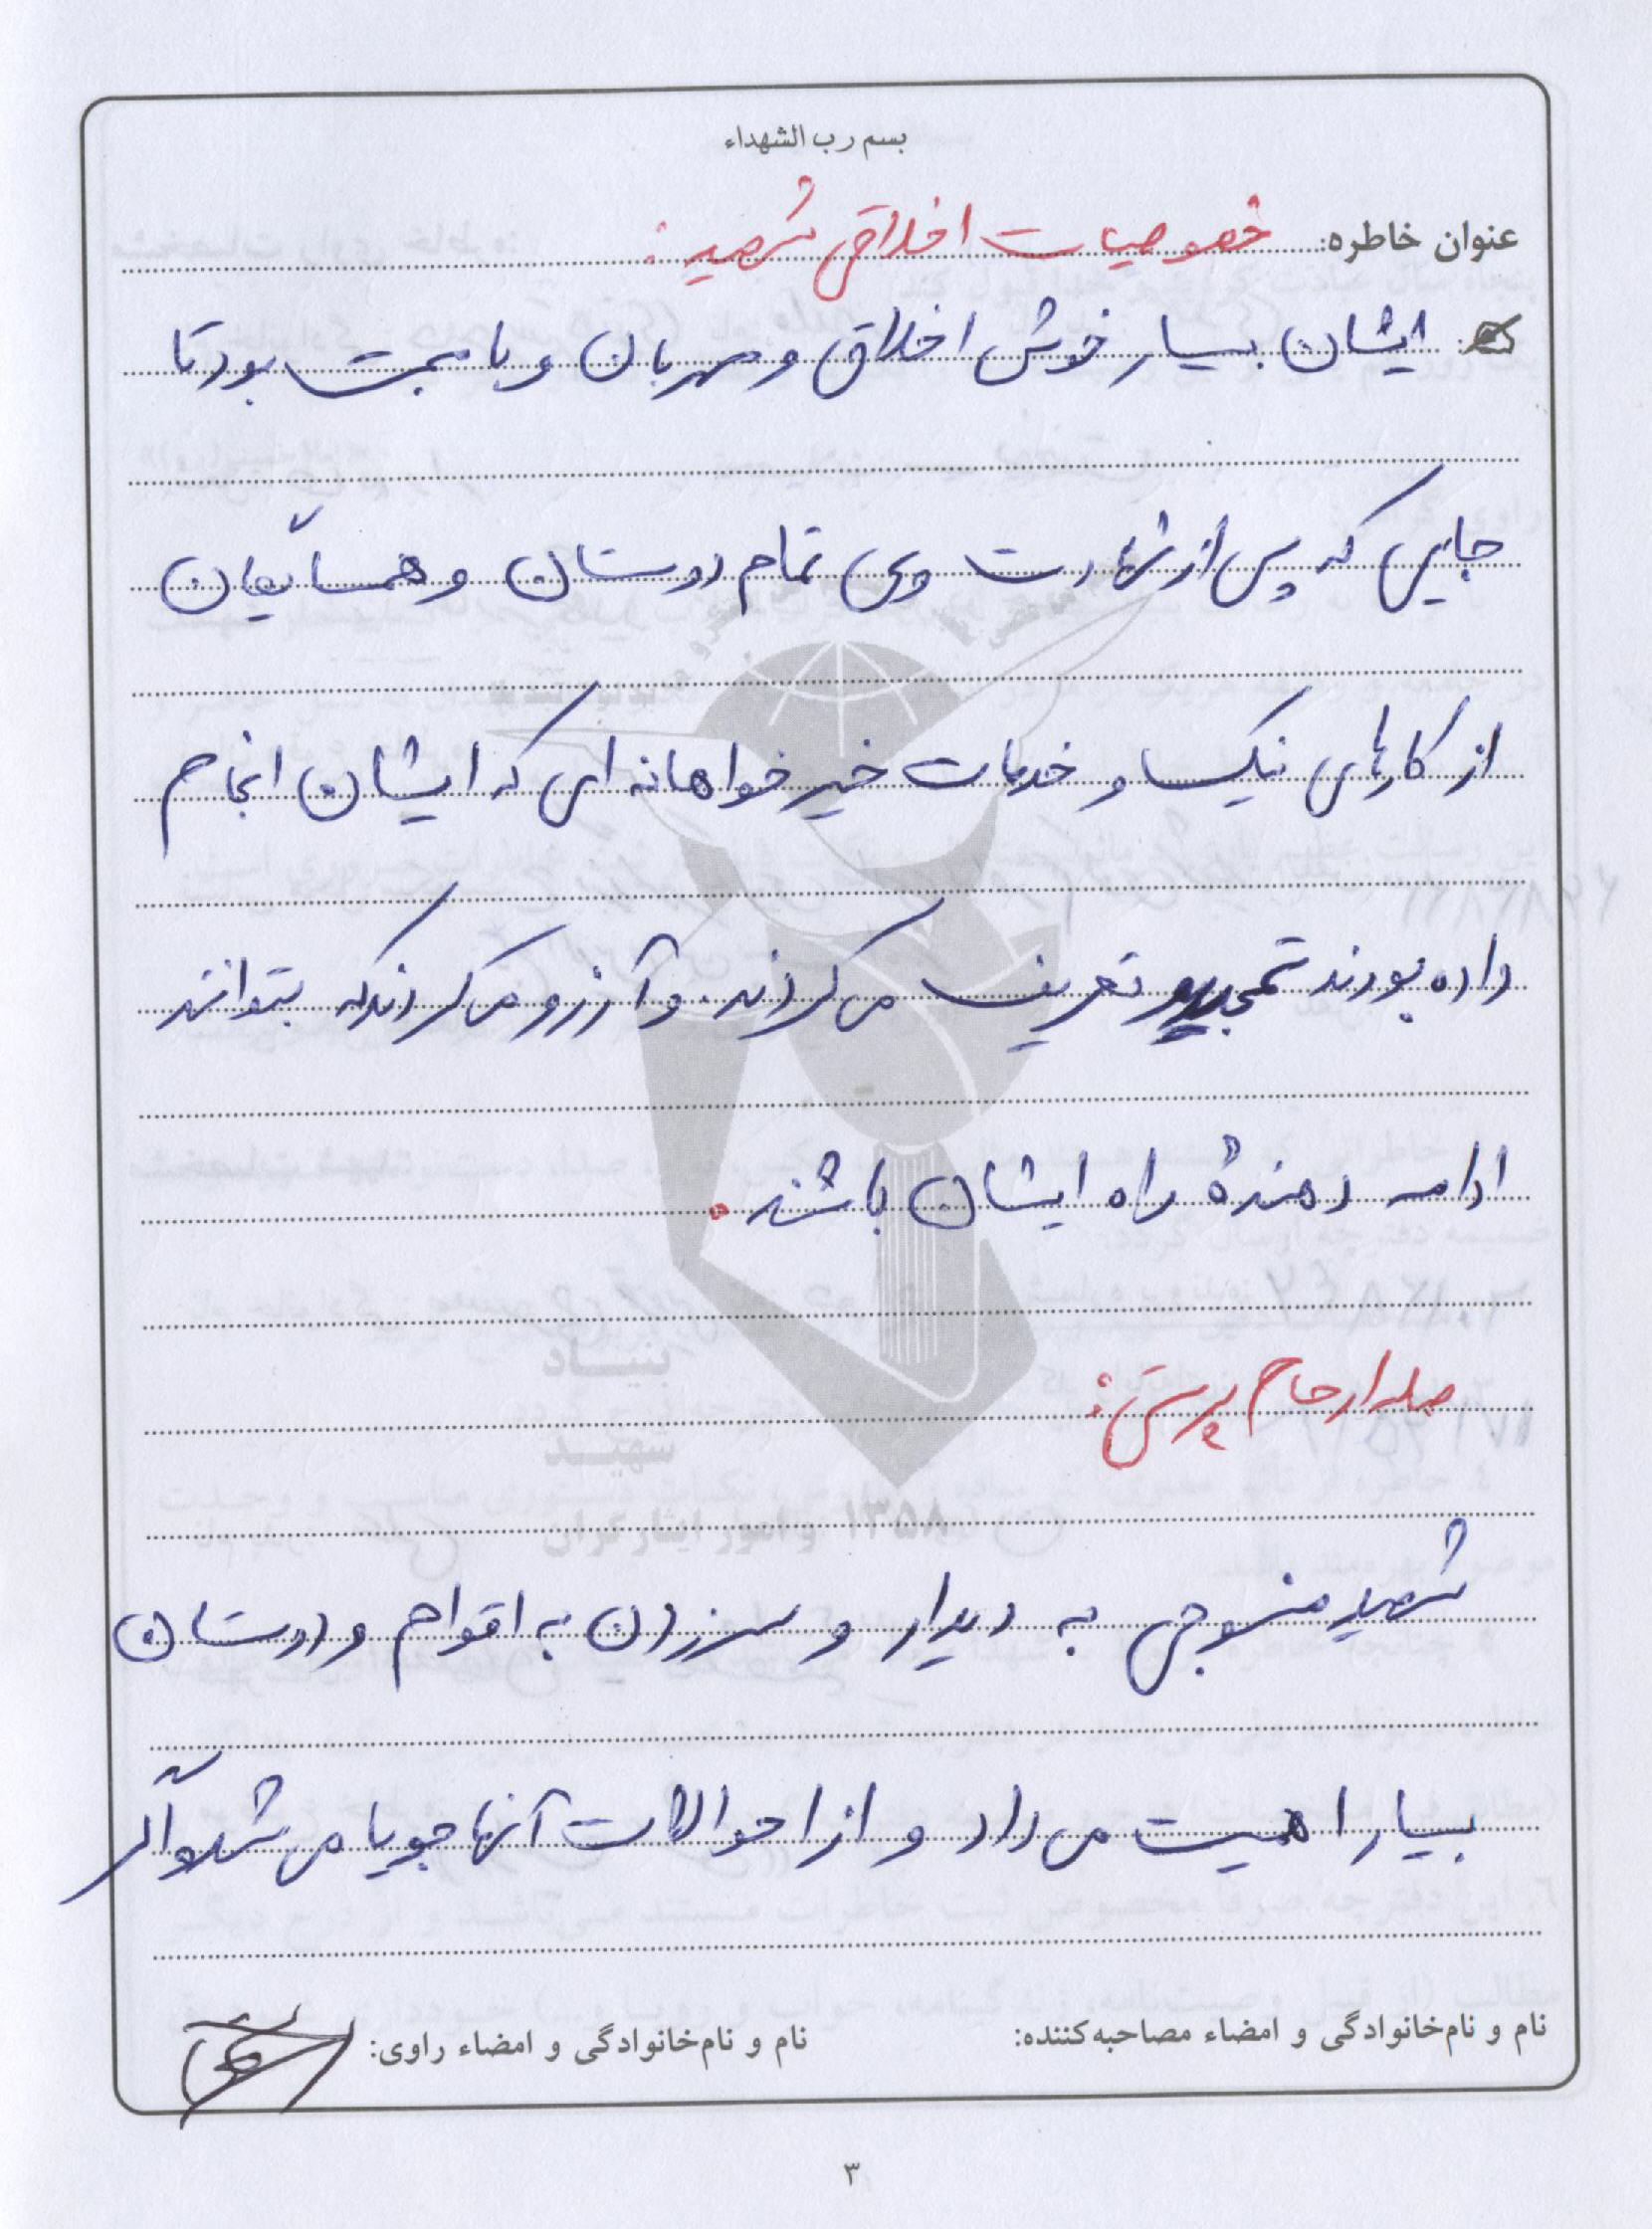 بسم رب الشهداء
عنوان خاطره: خصوصیات اخلاقی شهید:
ایشان بسیار خوش اخلاق و مهربان و با محبت بود تا
جایی که پس از شهادت وی تمام دوستان و همسایگان
از کارهای نیک و خدمات خیرخواهانه ای که ایشان انجام
داده بودند تمجید و تعریف می کردند. و آرزو می کردند که بتوانند
ادامه دهندهٔ راه ایشان باشند.
صله ارحام پرستی:
شهید منسوجی به دیدار و سرزدن به اقوام و دوستان
بسیار اهمیت می داد و از احوالات آنها جویا می شد و اگر
نام و نام‌خانوادگی و امضاء مصاحبه‌کننده: نام و نام‌خانوادگی و امضاء راوی:
۳
بنیاد
شهید
و امور ایثارگران
۱۳۵۸